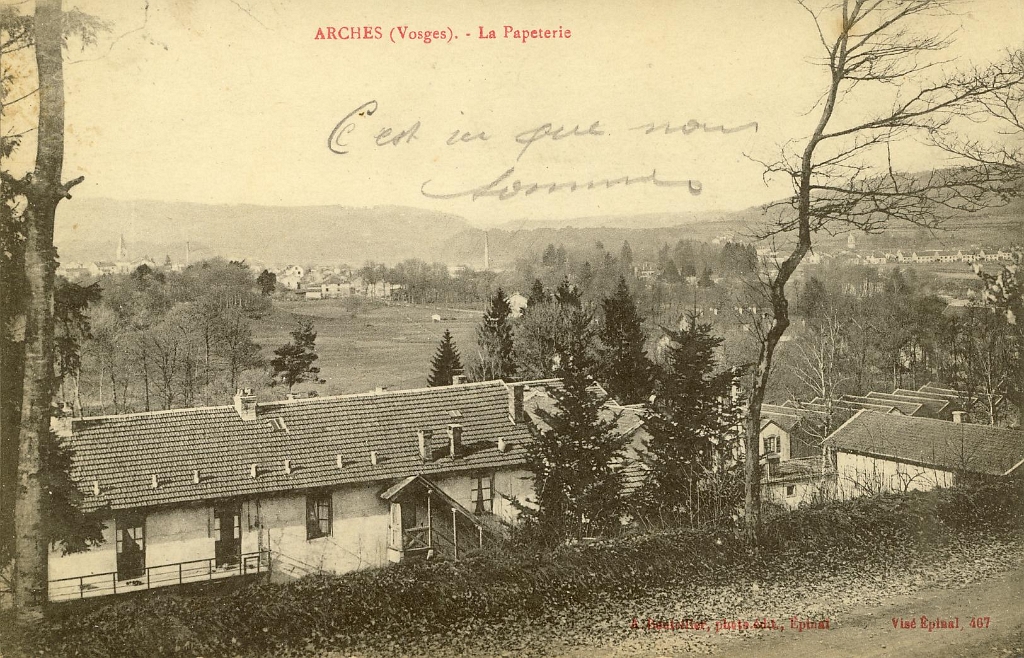 ARCHES (Vosges). - La Papeterie
C'est ici que nous
sommes
photo-édit., Épinal
Visé Épinal, 407